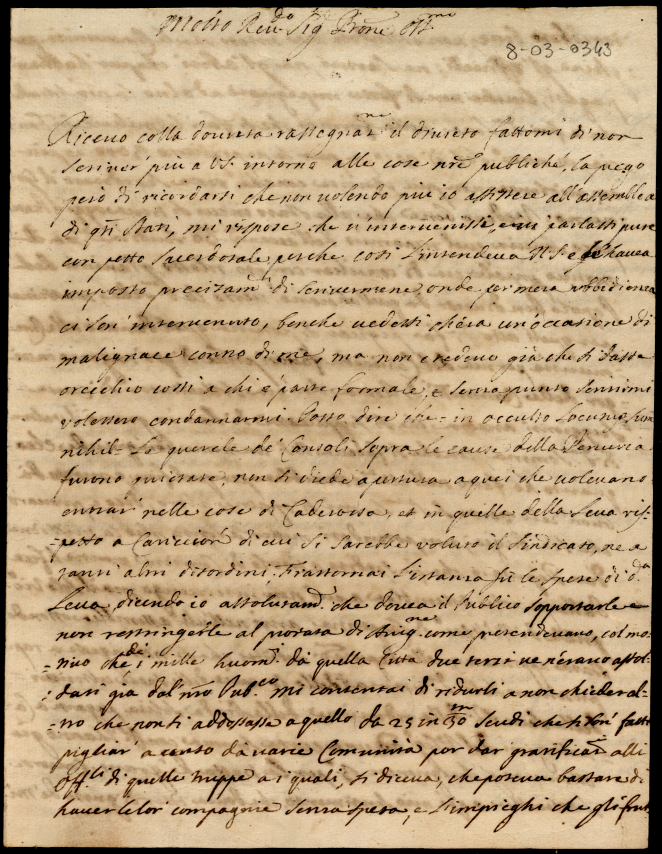 Molto Reu.do Sig.r Prone Oss.mo
8-03-0343
Riceuo colla douuta rassegnaz.ne il diuieto fattomi di non
scriuer' più a VS. intorno alle cose nre publiche, la prego
però di ricordarsi che non uolendo più io assistere all'assemblea
di qti Stati, mi rispose che u'interuenissi, e ui parlassi pure
con petto sacerdotale, perche così s'intendeua N.S. e haueua
imposto precisam.te di scriuermene, onde per mera ubbidienza
ci son' interuenuto, benche uedessi ch'era un'occasione di
malignare contro di me, ma non credeuo già che si dasse
orecchio costì a chi è parte formale, e senza punto sentirmi
uolessero condannarmi. Posso dire che = in occulto locutus sum
nihil = Le querele de' Consoli sopra le cause della Penuria
furono mitigate, non si diede apertura a quei che uoleuano
entrar' nelle cose di Caderossa, et in quelle della Leua ris-
=petto a di cui si sarebbe uoluto il sindicato, ne a
tanti altri disordini. Frastornai l'istanza sù le spese di d.a
Leua, dicendo io assolutam.te che doueua il Publico sopportarle e
non restringerle al prorata di Auig.ne come pretendeuano, col mo-
=tiuo che de i mille huom.i da quella Città due terzi ue n'erano assol-
=dati già dal nro Pub.co mi contentai di ridurli a non chieder al-
=tro che non si addossasse a quello da 25 in 30 m scudi che si son' fatti
pigliar' a censo da uarie Comunità per dar gratificaz.ni alli
Off.li di quelle truppe a i quali, si diceua, che poteua bastare di
hauer le lor' compagnie senza spesa, e s'impieghi che gli frut